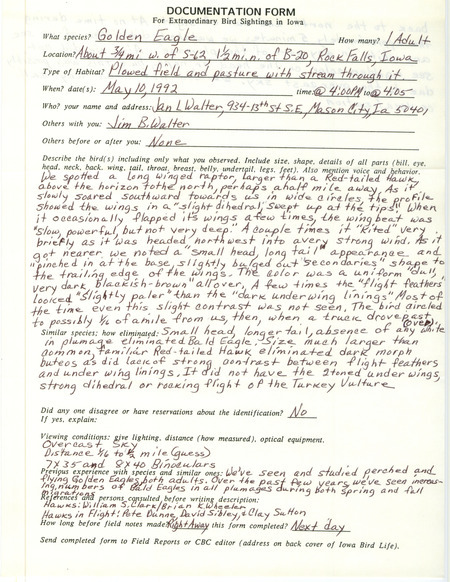 DOCUMENTATION FORM
For Extraordinary Bird Sightings in Iowa
What species? Golden Eagle How many? 1 Adult
Location? About 3/4 mi w. of S-62, 1 1/2 mi. n. of B-20, Rock Falls, Iowa
Type of Habitat? Plowed field and pasture with stream through it.
When? date(s): May 10, 1992 time: @ 4:00PM to @ 4:05
Who? your name and address: Jan L Walter, 934-13th St S.E., Mason City, Ia 50401
Others with you: Jim B. Walter
Others before or after you: None
Describe the bird(s) including only what you observed. Include size, shape, details of all parts (bill, eye,
head, neck, back, wing, tail, throat, breast, belly, undertail, legs, feet). Also mention voice and behavior.
We spotted a long winged raptor, larger than a Red-tailed Hawk,
above the horizon to the north, perhaps a half mile away. As it
slowly soared southward towards us in wide circles, the profile
showed the wings in a "slight dihedral, swept up at the tips". When
it occasionally flapped it's wings a few times, the wing beat was
"slow, powerful, but not very deep." A couple times it "kited" very
briefly as it was headed northwest into a very strong wind. As it
got nearer we noted a "small head, long tail" appearance and
"pinched in at the base, slightly bulged out secondaries" shape to
the trailing edge of the wings. The color was a uniform "dull,
very dark blackish-brown" all over. A few times the "flight feathers
looked "slightly paler" than the "dark underwing linings" Most of
the time even this slight contrast was not seen. The bird circled
to possibly 1/6 of a mile from us, then, when a truck drove past,
(over).
Similar species: how eliminated: Small head, longer tail, absence of any white
in plumage eliminated Bald Eagle. Size much larger than
common, familiar Red-tailed Hawk eliminated dark morph
buteos as did lack of strong contrast between flight feathers
and under wing linings. It did not have the 2 toned under wings,
strong dihedral or rocking flight of the Turkey Vulture
Did any one disagree or have reservations about the identification? No
If yes, explain:
Viewing conditions: give lighting, distance (how measured), optical equipment.
Overcast sky
Distance 1/6 to 1/2 mile (guess)
7x35 and 8x40 Binoculars
Previous experience with species and similar ones: We've seen and studied perched and
flying Golden Eagles, both adults. Over the past few years we've seen increas-
ing numbers of Bald Eagles in all plumages during both Spring and fall
migrations
References and persons consulted before writing description:
Hawks: William S. Clark/Brian K Wheeler
Hawks in Flight: Pete Dunne, David Sibley, & Clay Sutton
How long before field notes made? Right Away this form completed? Next day
Send completed form to Field Reports or CBC editor (address on back cover of Iowa Bird Life).